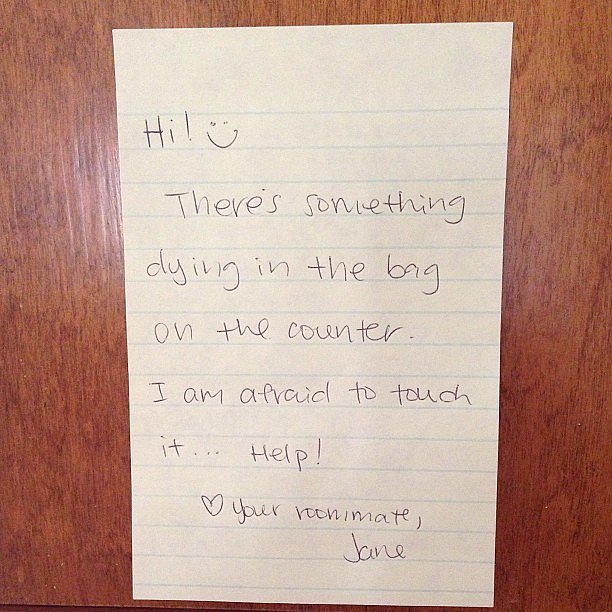 Hi! :)
There's something
dying in the bag
on the counter.
I am afraid to touch
it... Help!
♡ your roommate,
Jane